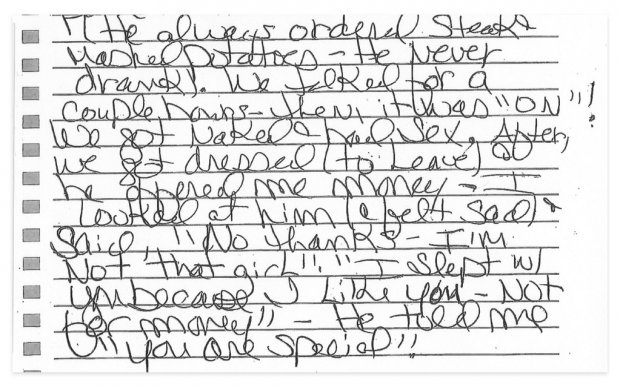 "(He always ordered Steak &
Mashed Potatoes - He never
drank). We talked for a
couple hours - then, it was "ON"!
We got naked & had sex. After,
we got dressed (to leave) &
he offered me money - I
looked at him (& felt sad) &
Said, "No thanks - I'm
Not 'that girl'!" "I slept w/
you because I like you - Not
for money" - He told me
"you are special"!